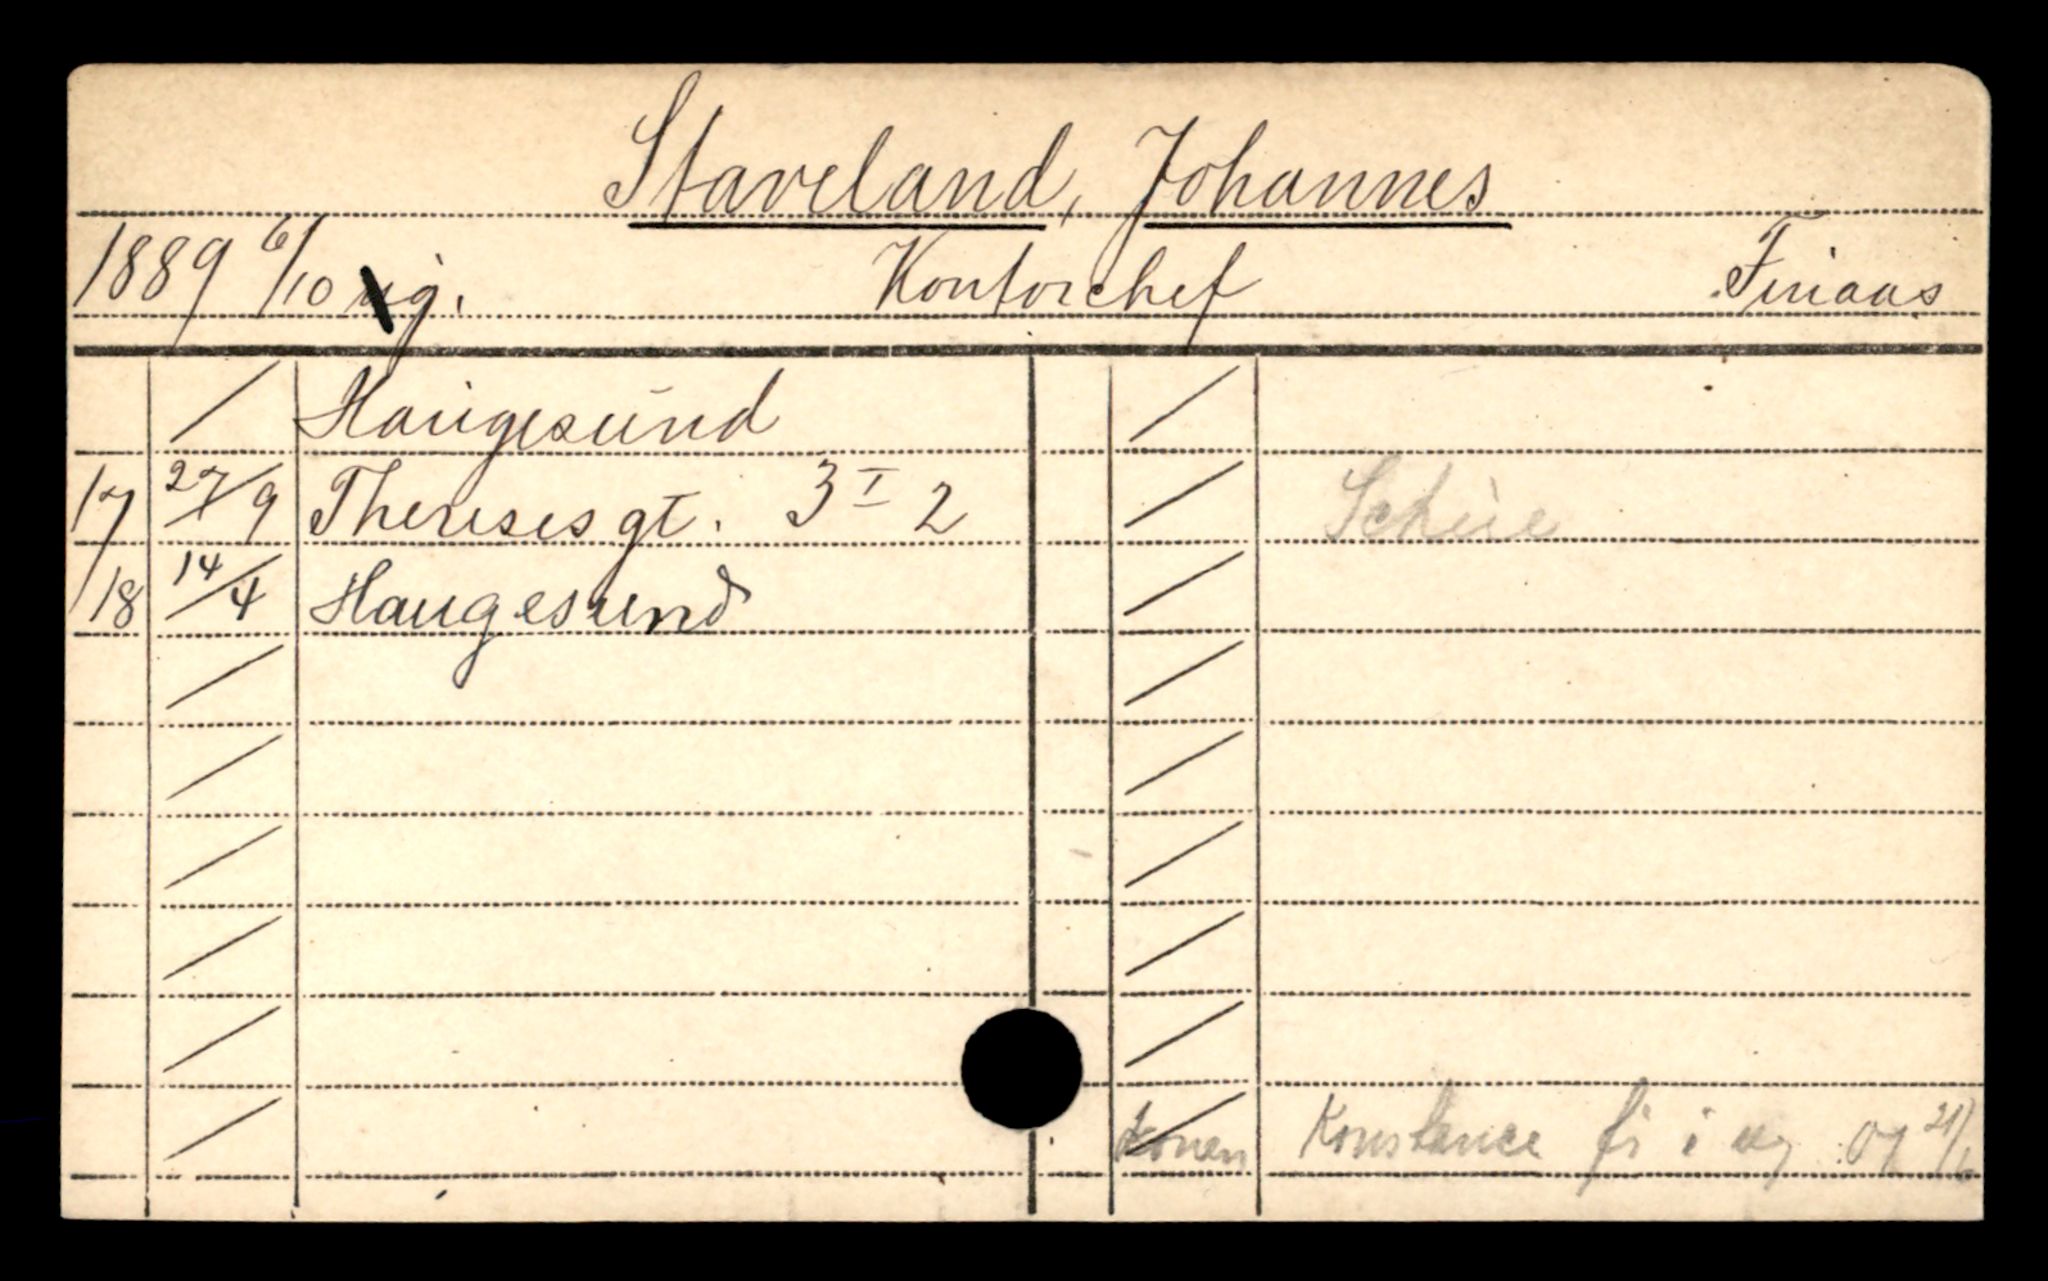 Staveland, Johannes
1889 6/10 ug. Kontorchef Finaas
/ Haugesund /
17 27/9 Theresesgt. 3 I 2 /
18 14/4 Haugesund /
konen Konstance